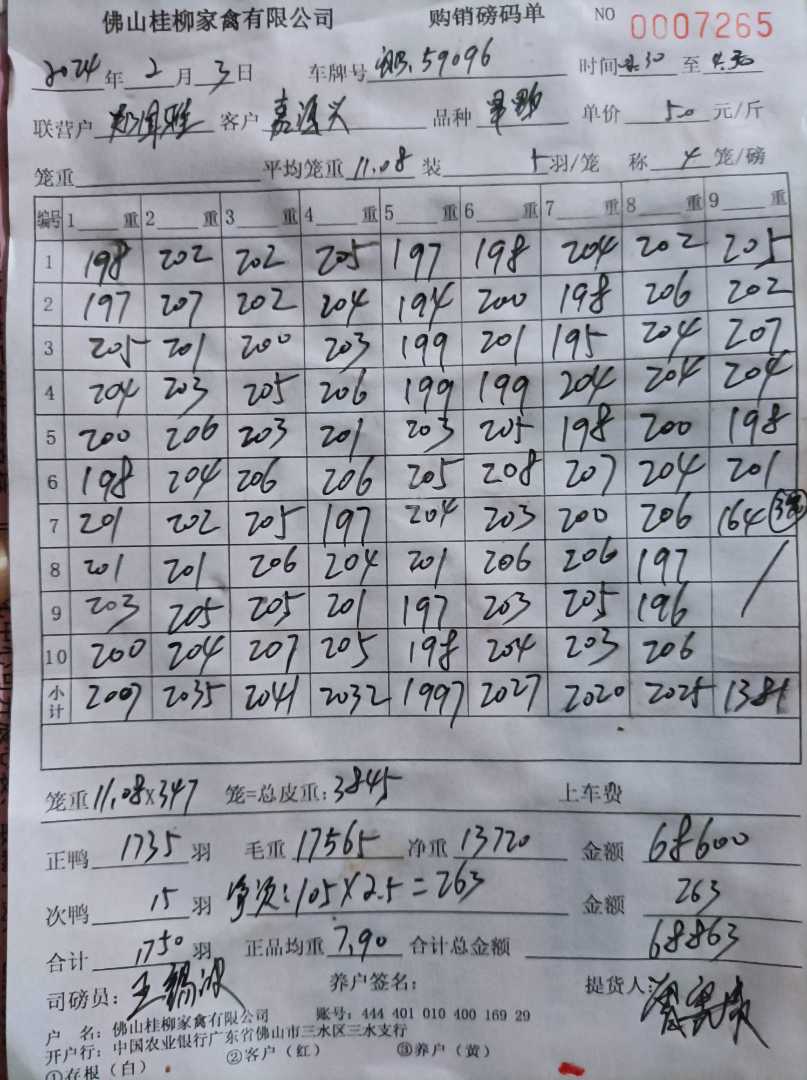 佛山桂柳家禽有限公司 购销磅码单 NO 0007265
2024年2月3日 车牌号 59096 时间 2.30 至 4.30
联营户 客户 嘉源兴 品种 单价 5.0 元/斤
笼重 平均笼重 11.08 装 5 羽/笼 称 4 笼/磅
编号 1 重 2 重 3 重 4 重 5 重 6 重 7 重 8 重 9 重
1 198 202 202 205 197 198 204 202 205
2 197 207 202 204 194 200 198 206 202
3 205 201 200 203 199 201 195 204 207
4 204 203 205 206 199 199 204 204 204
5 200 206 203 201 203 205 198 200 198
6 198 204 206 206 205 208 207 204 201
7 201 202 205 197 204 203 200 206 164 3笼
8 201 201 206 204 201 206 206 197 /
9 203 205 205 201 197 203 205 196
10 200 204 207 205 198 204 203 206
小计 2007 2035 2041 2032 1997 2027 2020 2025 1381
笼重 11.08×347 笼=总皮重: 3845 上车费
正鸭 1735 羽 毛重 17565 净重 13720 金额 68600
次鸭 15 羽 :105×2.5=263 金额 263
合计 1750 羽 正品均重 7.90 合计总金额 68863
司磅员: 王锡波 养户签名: 提货人:
户 名: 佛山桂柳家禽有限公司 账号: 444 401 010 400 169 29
开户行: 中国农业银行广东省佛山市三水区三水支行
①存根(白) ②客户(红) ③养户(黄)